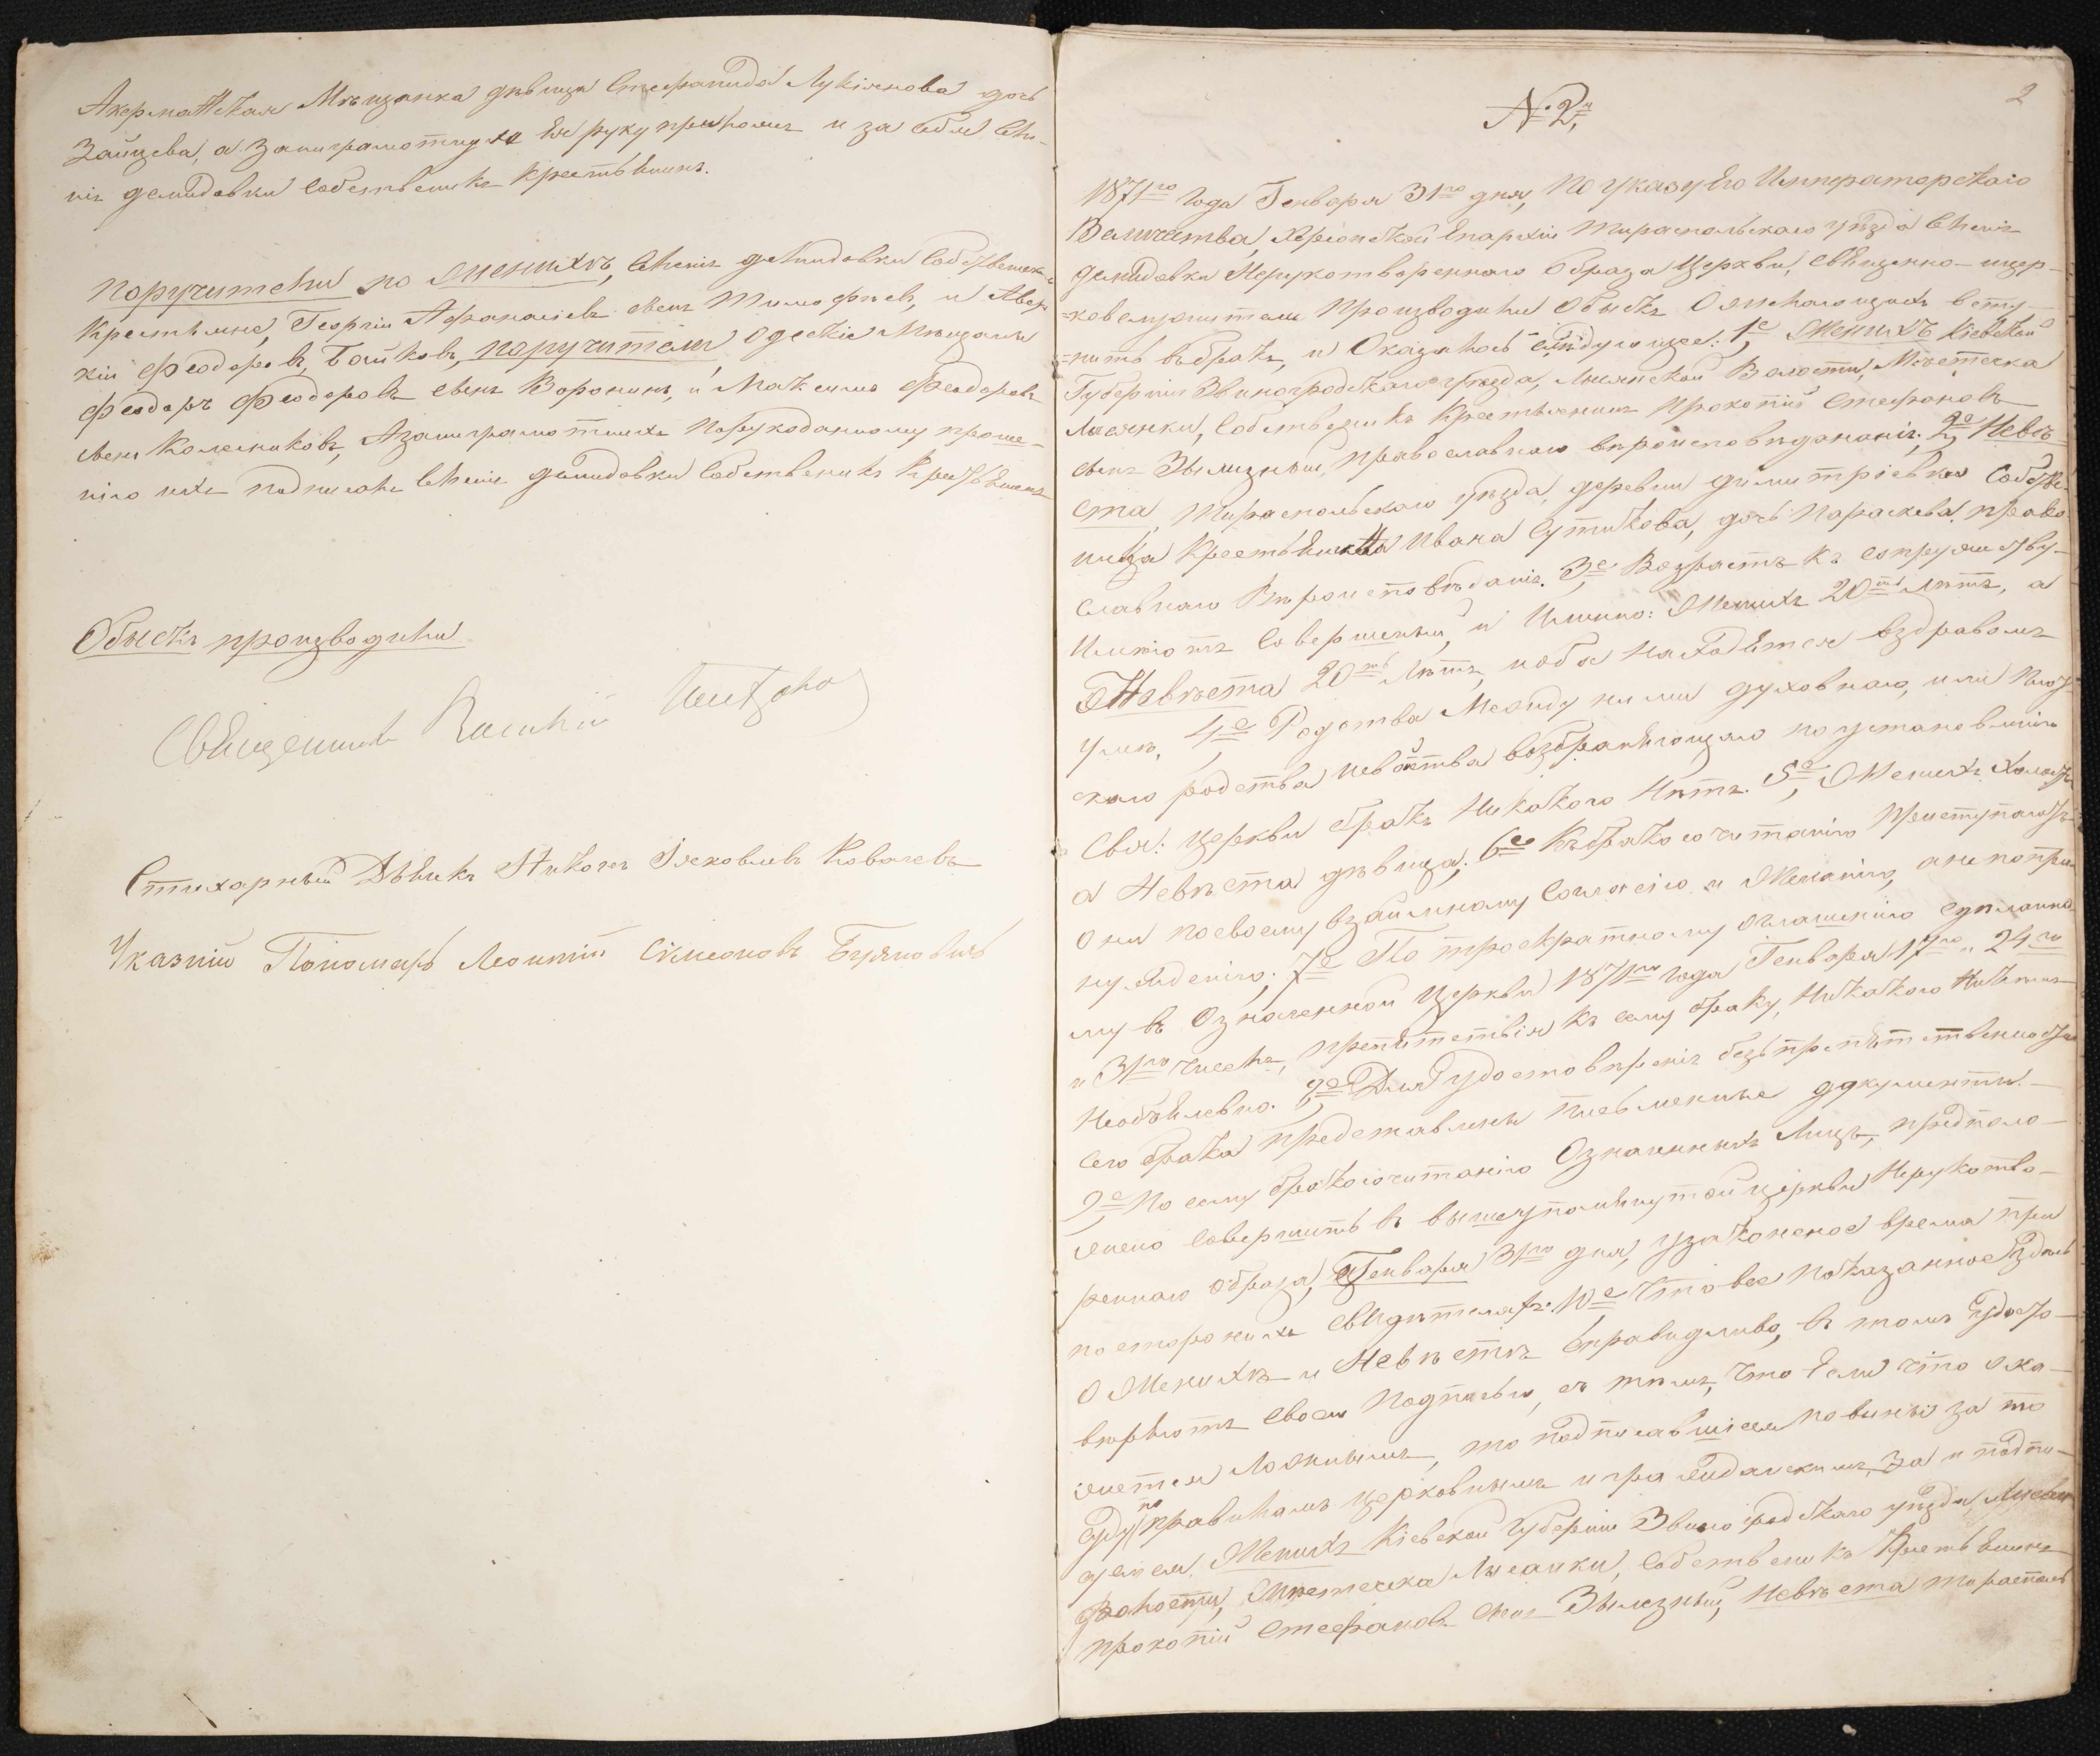 Акерманская Мещанка девица Степанида Лукіянова дочь
Зайцева, а за неграмотную Ея руку приложилъ и за себя Селе-
нія демидовки собственикъ Крестьянинъ.
поручители по женихѣ, Селенія демидовки собственики
Крестьяне, Георгій Афанасіевъ сынъ Тимофѣевъ, и Авер-
кій Феодоровъ Байковъ, поручители, Одесскіе Мѣщане
Феодоръ Феодоровъ сынъ Воронинъ, и Максимъ Феодоровъ
сынъ Колесниковъ, А за неграмотныхъ по рукоданному проше-
нію ихъ подписалъ Селенія демидовки собственикъ Крестьянинъ
Обыскъ производили
Священникъ Василій
Стихарный Дьячекъ Николай Іяковлевъ Ковалевъ
Указній Пономарь Леонтій Симеоновъ
2
№ 2й
1871го Года Генваря 31го дня, По указу Его Императорскаго
Величества, Херсонской Епархіи Тираспольскаго уѣзда Селенія
демидовки Нерукотвореннаго Образа Церкви, Священно-цер-
=ковслужители производили Обыскъ О желающихъ всту-
=пить въ бракъ, и Оказалось слѣдующее: 1е, Женихъ Кіевской
Губерніи Звиногродскаго уѣзда, Лысянской Волости, Мѣстечка
Лысянки, Собственикъ Крестьянинъ Прокопій Стефановъ
сынъ Звылизный, православнаго вѣроисповѣданія. 2е, Невѣ-
ста, Тираспольскаго уѣзда, деревни димитріевки Собстве-
ника Крестьянина Ивана Сутикова, дочь Параскева право-
славнаго Вѣроисповѣданія. 3е, Возрастъ къ супружеству
Имѣютъ Совершенный, и Именно: Женихъ 20ть лѣтъ, а
Невѣста 20ть Лѣтъ, и оба находятся въ здравомъ
умѣ, 4е, Родства Между ними духовнаго, или Плот-
скаго родства и свойства возбраняющаго по установленію
Свят: церкви бракъ никакого Нѣтъ. 5е, Женихъ Холостъ
а Невѣста дѣвица. 6е Къ бракосочитанію приступаютъ
Они по своему взаимному Согласію и Желанію, а не по при-
нужденію. 7е, По троекратному оглашенію сдѣланно-
му въ Означенной Церкви 1871го года Генваря 17го, 24го
и 31го числа, препятствія къ сему браку, Никакого Никемъ
Необъявлено. 8е, Для удостовѣренія безпрепятственности
сего брака представлены письменные документы.
9е По сему бракосочитанію Означенныхъ Лицъ, предполо-
жено совершить въ вышеупомянутой церкви Нерукотво-
реннаго образа, Генваря 31го дня, узаконеное время при
постороннихъ свидѣтеляхъ. 10е, Что все показанное здѣсь
О Женихѣ и Невѣстѣ справидливо, въ томъ удосто-
вѣряютъ своею Подписью, съ тѣмъ, что Если что ока-
жется Ложнымъ, то подписавшіеся повинны за то
суду по правиламъ церковнымъ и гражданскимъ, За и подпи-
суемся, Женихъ Кіевской Губерніи Звиногродскаго уѣзда, Лысян
Волости, Мѣстечка Лысанки, собственикъ Крестьянинъ
прокопій Стефановъ сынъ Звылезный, Невѣста тираспол